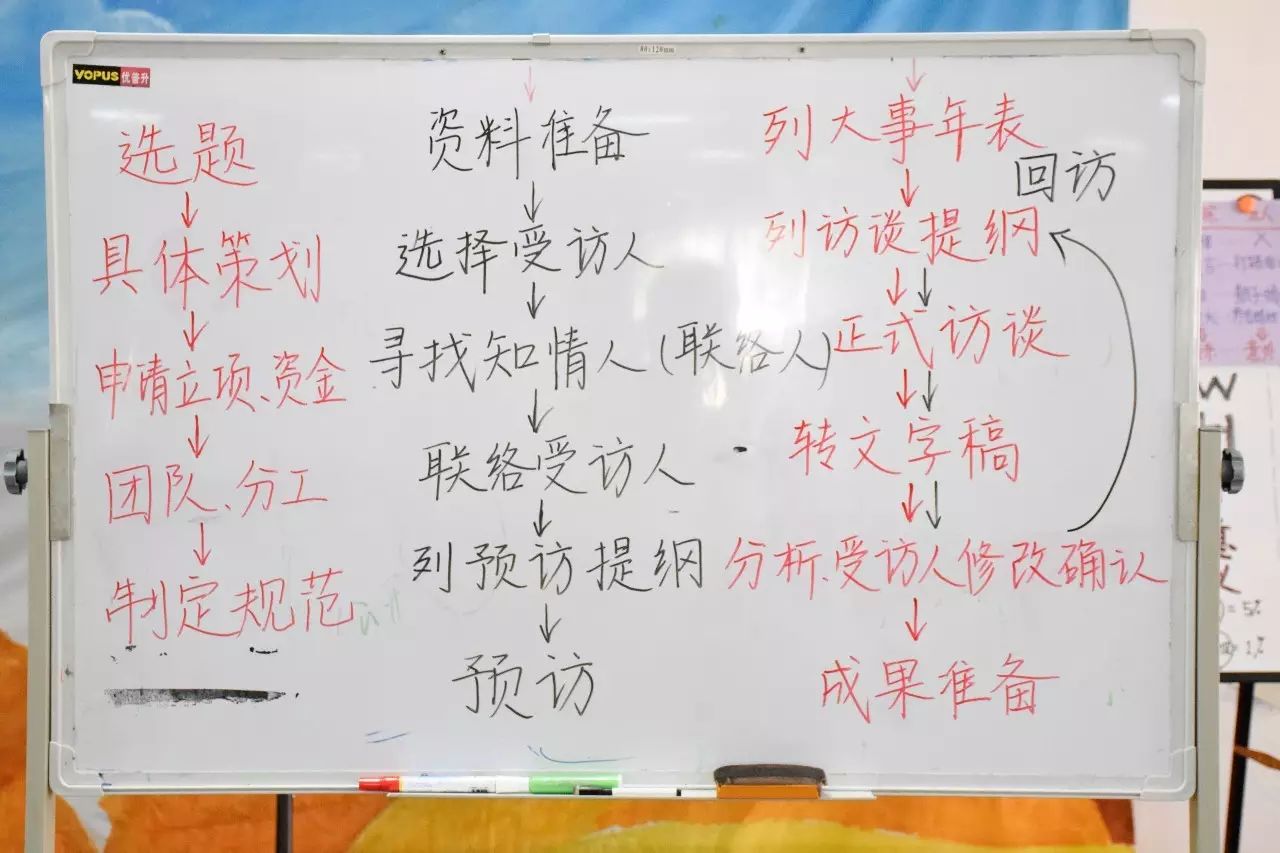 YOPUS 优普升
选题
具体策划
申请立项、资金
团队、分工
制定规范
资料准备
选择受访人
寻找知情人(联络人)
联络受访人
列预访提纲
预访
列大事年表
回访
列访谈提纲
正式访谈
转文字稿
分析、受访人修改确认
成果准备